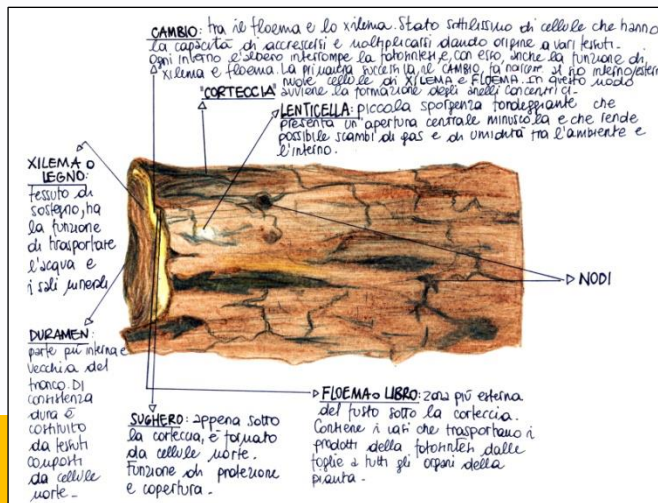 CAMBIO: tra il floema e lo xilema. Stato sottilissimo di cellule che hanno
la capacità di accrescersi e moltiplicarsi dando origine a vari tessuti.
Ogni inverno l'albero interrompe la fotosintesi e, con esso, anche la funzione di
xilema e floema. La primavera successiva, il CAMBIO, fa nascere al suo interno/esterno
nuove cellule di XILEMA e FLOEMA. In questo modo
avviene la formazione degli anelli concentrici.
"CORTECCIA"
LENTICELLA: piccola sporgenza tondeggiante che
presenta un'apertura centrale minuscola e che rende
possibile scambi di gas e di umidità tra l'ambiente e
l'interno.
XILEMA O
LEGNO:
tessuto di
sostegno, ha
la funzione
di trasportare
l'acqua e
i sali minerali
NODI
DURAMEN:
parte più interna e
vecchia del
tronco. Di
consistenza
dura è
costituito
da tessuti
composti
da cellule
morte.
SUGHERO: appena sotto
la corteccia, è formato
da cellule morte.
Funzione di protezione
e copertura.
FLOEMA O LIBRO: zona più esterna
del fusto sotto la corteccia.
Contiene i vasi che trasportano i
prodotti della fotosintesi dalle
foglie a tutti gli organi della
pianta.